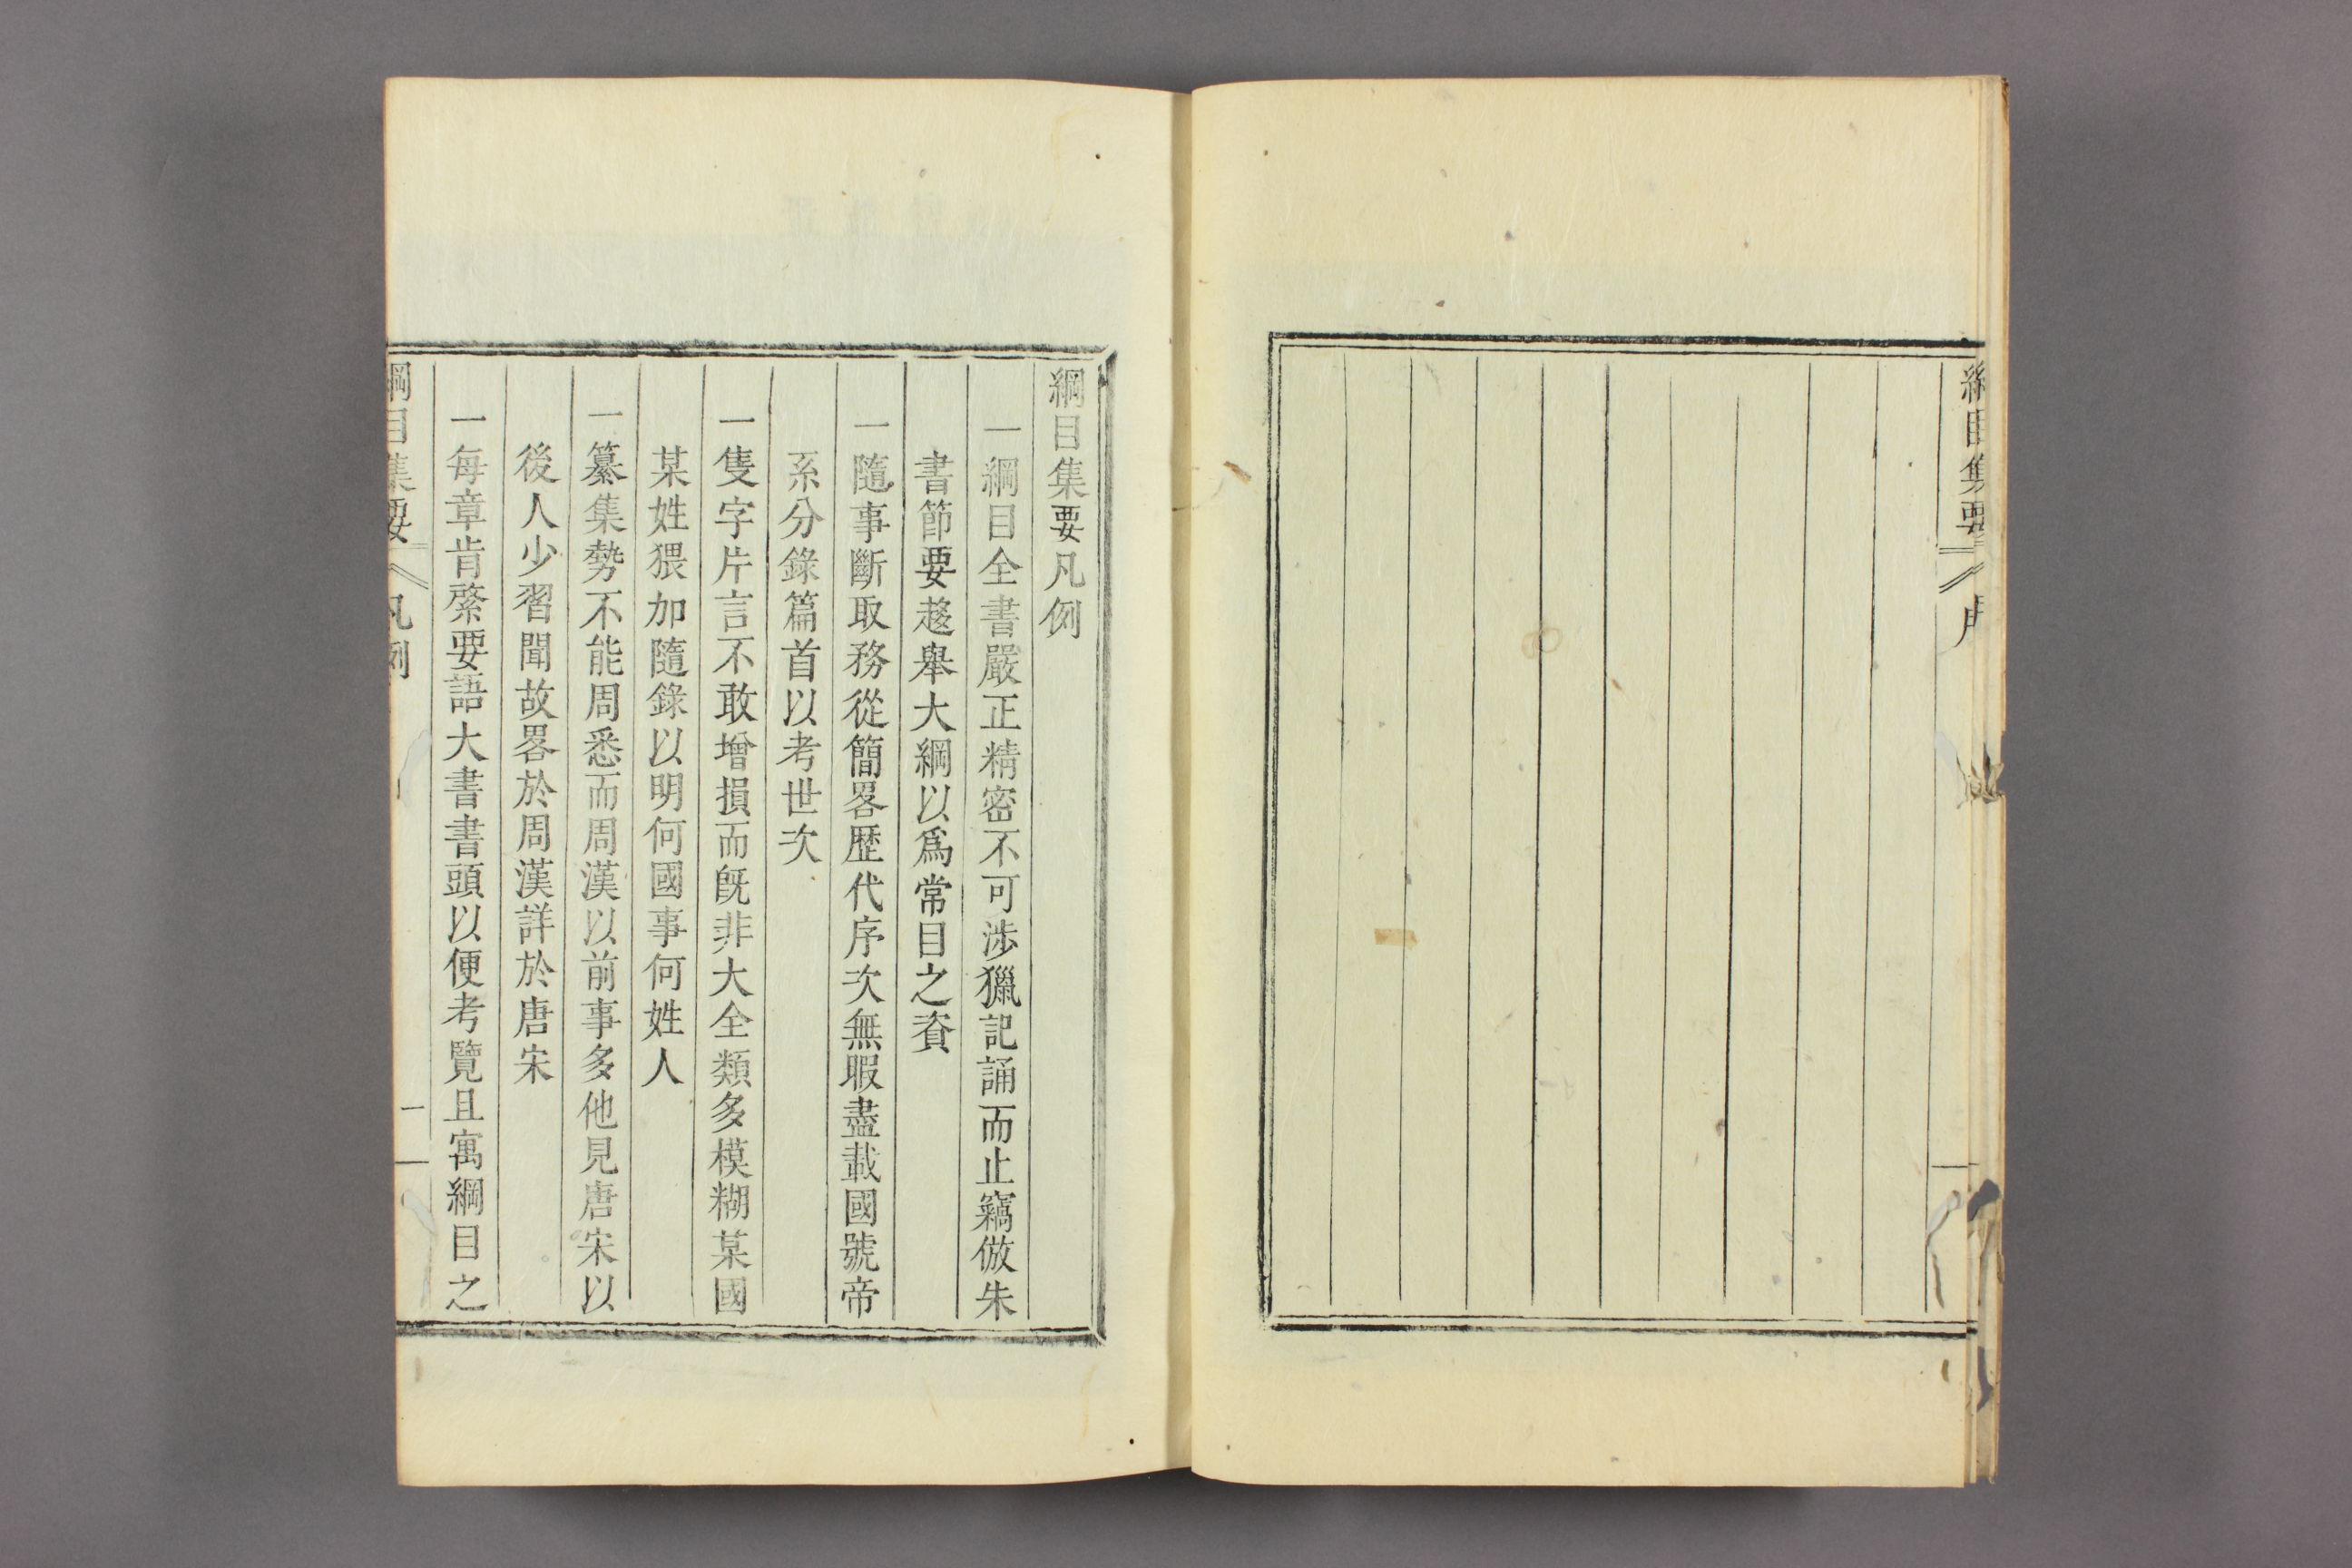 綱目集要
綱目集要凡例
一綱目全書嚴正精密不可涉獵記誦而止竊倣朱
書節要趍舉大綱以爲常目之資
一隨事斷取務從簡畧歷代序次無暇盡載國號帝
系分錄篇首以考世次
一隻字片言不敢增損而旣非大全類多模糊某國
某姓猥加隨錄以明何國事何姓人
一纂集勢不能周悉而周漢以前事多他見唐宋以
後人少習聞故畧於周漢詳於唐宋
一每章肯綮要語大書書頭以便考覽且寓綱目之
綱目集要 凡例 一